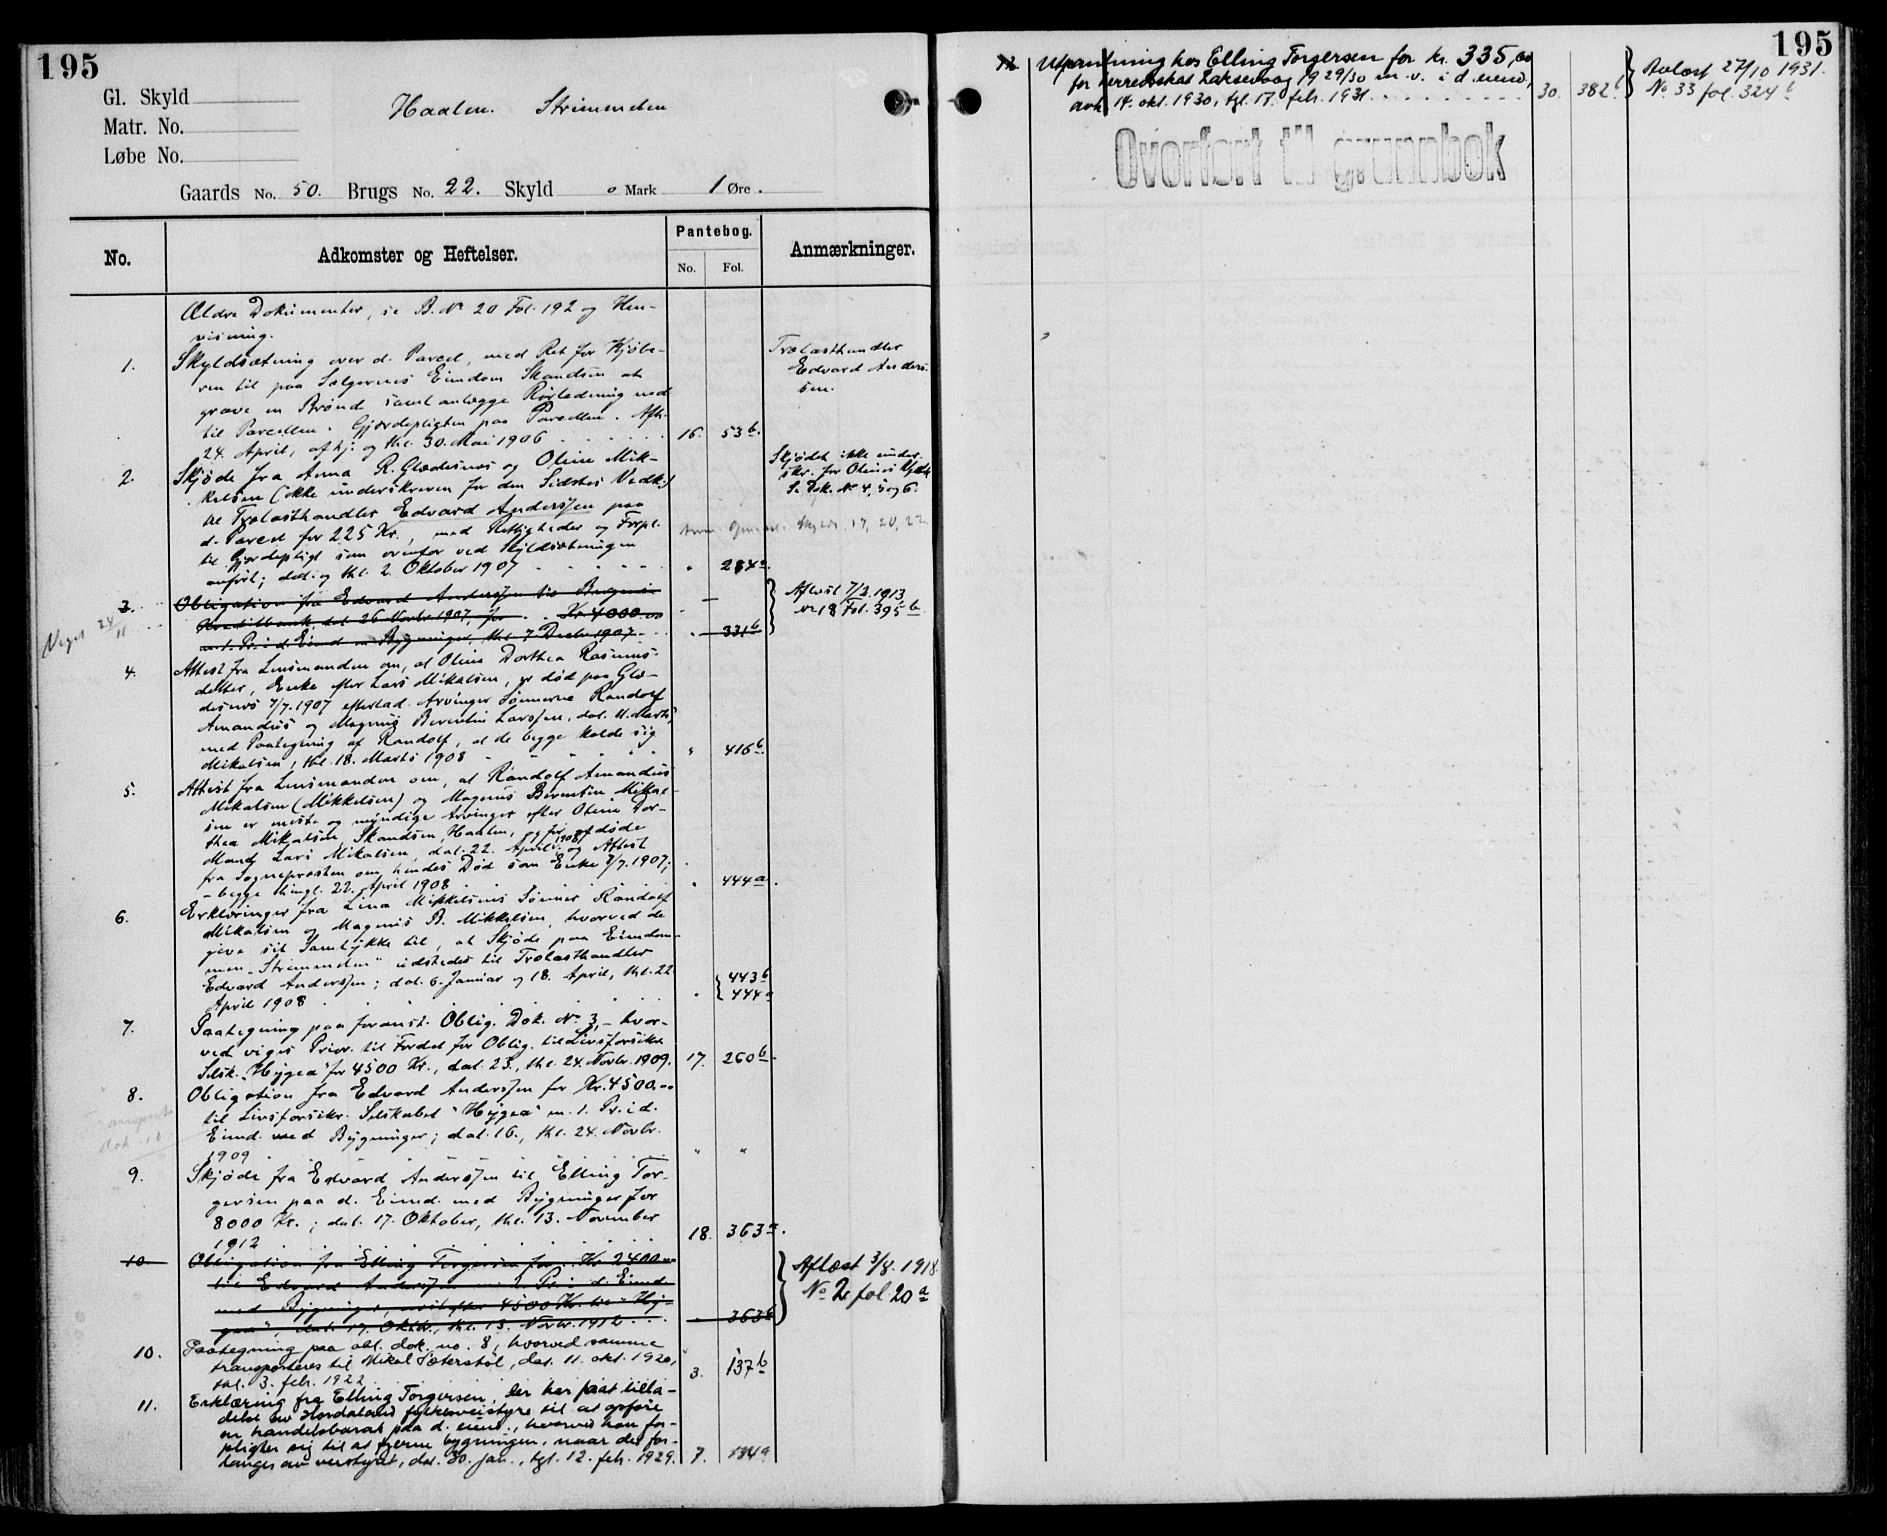 195
Gl. Skyld
Matr. No.
Løbe No.
Haalen. Strimmelen
Gaards No. 50. Brugs No. 22. Skyld 0 Mark 1 Øre.
No. Adkomster og Heftelser. Pantebog. No. Fol. Anmærkninger.
Ældre Dokumenter, se B. No 20 Fol. 192 og Hen-
visning.
1. Skyldsætning over d. Parcel, med Ret for Kjøbe-
ren til paa Sælgernes Eiendom Skandsen at
grave en Brønd samt anlægge Rørledning ned
til Parcellen. Gjærdepligten paa Parcellen. Afh.
24. April, afhj. og thl. 30. Mai 1906 16. 53b.
Trælasthandler
Edvard Anders-
sen.
2. Skjøde fra Anna R. Gladesnes og Oline Mik-
kelsen (ikke underskreven for den Sidstes Vedk.)
til Trælasthandler Edvard Anderssen paa
d. Parcel for 225 Kr., med Rettigheder og Forpl.
til Gjærdepligt som ovenfor ved Skyldsætningen
anført; dat. og thl. 2. Oktober 1907 " 284a.
Skjødet ikke under-
skr. for Olines Vedk.
Se Dok. No 4, 5 og 6.
17, 20, 22
3. Obligation fra Edvard Anderssen til Bergens
Kreditbank, dat. 26 Novbr 1907, for Kr 4000.00
m. 1. Pr. i d. Eiend. m Bygninger, thl. 7 Decbr 1907 " 331b
Aflæst 7/2 1913,
No 18 Fol. 395b.
Viget 24/11
4. Attest fra Lensmanden om, at Oline Dorthea Rasmus-
datter, Enke efter Lars Mikalsen, er død paa Gla-
desnes 7/7. 1907 efterlad. Arvinger Sønnerne Randolf
Amandus og Magnus Berentin Larssen, dat. 11. Marts,
med Paategning af Randolf, at de begge kalde sig
Mikalsen, thl. 18. Marts 1908 " 416b.
5. Attest fra Lensmanden om, at Randolf Amandus
Mikalsen (Mikkelsen) og Magnus Berentin Mikal-
sen er eneste og myndige Arvinger efter Oline Dor-
thea Mikalsen Skandsen, Haalen, og før afdøde
Mand Lars Mikalsen, dat. 22. April 1908, og Attest
fra Sognepræsten om hendes Død som Enke 7/7. 1907;
- begge thingl. 22. April 1908 " 444a.
6. Erklæringer fra Lina Mikkelsens Sønner Randolf
Mikalsen og Magnus B. Mikkelsen, hvorved de
give sit Samtykke til, at Skjøde paa Eiendom-
men „Strimmelen" udstedes til Trælasthandler
Edvard Anderssen; dat. 6. Januar og 18. April, thl. 22
April 1908 " 443b 444a
7. Paategning paa foranst. Oblig. Dok. No 3, - hvor-
ved viges Prior. til Fordel for Oblig. til Livsforsikr.
Selsk. „Hygea" for 4500 Kr., dat. 23., thl. 24. Novbr. 1909. 17. 260b.
8. Obligation fra Edvard Anderssen for Kr. 4500.00
til Livsforsikr. Selskabet "Hygea" m. 1. Pr. i d.
Eiend. med Bygninger; dat. 16., thl. 24. Novbr.
1909 " "
dok. 10
9. Skjøde fra Edvard Anderssen til Elling Tor-
gersen paa d. Eiend. med Bygninger for
8000 Kr.; dat. 17. Oktober, thl. 13. November
1912 18. 363a.
10 Obligation fra Elling Torgersen for Kr 2400.00
til Edvard Anderssen m. 2. Pr. i d. Eiend.
med Bygninger, næst efter 4500 Kr. til "Hy-
gea", dat. 17. Oktbr., thl. 13. Novbr. 1912 " 363b
Aflæst 3/8. 1918
No 2 fol 20a
10. Paategning paa obl. dok. no. 8, hvorved samme
transporteres til Mikal Sæterstøl, dat. 11. okt. 1920,
tgl. 3. feb. 1922 3. 137b
11. Erklæring fra Elling Torgersen, der har faat tilla-
delse av Hordaland fylkesveistyre til at opføre
en handelsbarak paa d. eiend., hvorved han for-
pligter sig til at fjerne bygningen, naar det for-
langes av veistyret, dat. 30. jan., tgl. 12. feb. 1929. 7. 134a
195
12 Utpantning hos Elling Torgersen for kr. 335,00
for herredsskat Laksevaag 1929/30 m.v. i d. eiend,
avh. 14. okt. 1930, tgl. 17. feb. 1931 30. 382b
Avlæst 27/10 1931.
No 33 fol. 324b
Overført til grunnbok